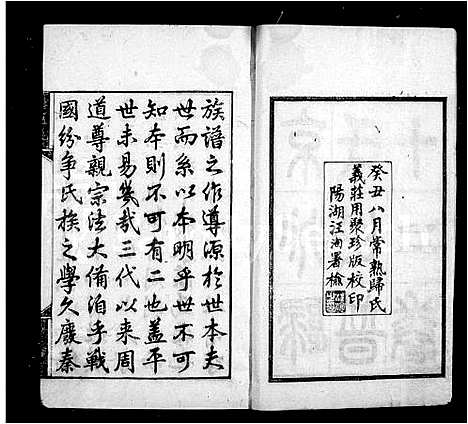 癸丑八月常熟歸氏
義莊用聚珍版校印
陽湖汪洵署檢
族譜之作導源於世本夫
世而系以本明乎世不可
知本則不可有二也蓋平
世未易幾哉三代以来周
道尊親宗法大備洎乎戰
國紛争氏族之學久廢秦